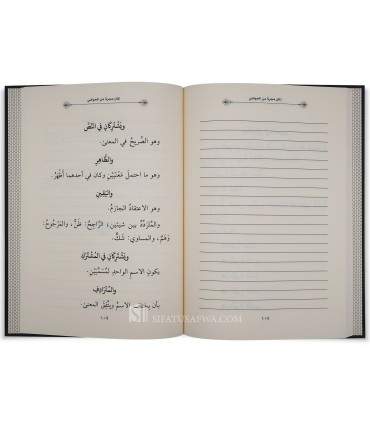 مجردة من الحواشي
مجردة من الحواشي
ويَشْتَرِكَانِ فِي النَّصِّ
وهو الصَّرِيحُ في المعنىٰ.
والظَّاهِرِ
وهو ما احتملَ مَعْنَيَيْنِ وكان في أحدهما أَظْهَرُ.
واليَقِينِ
وهو الاعتقادُ الجازمُ.
والمُتَرَدِّدُ بين شيئينِ، الرَّاجِحُ: ظَنٌّ، والمَرْجُوحُ:
وَهَمٌ، والمساوي: شَكٌّ.
ويَشْتَرِكَانِ فِي المُشْتَرَكِ
يكونُ الاسمُ الواحدُ لمُسَمَّيَيْنِ.
والمُتَرَادِفِ
بأن الاسمُ المعنىٰ.
SIFATUSAFWA.COM